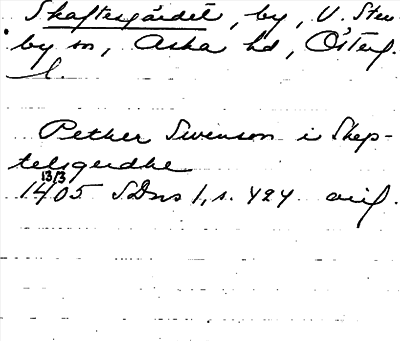 Skaftergärdet, by, V. Sten
by sn, Aska hd, Österg.
l.
Pether Swenson i Skep-
telsgerdhe
13/3
1405 SDns 1, s. 424 orig.